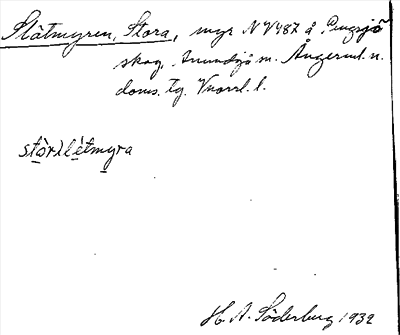 Slåtmyren, Stora, myr NV487 å Pengsjö
skog, Anundsjö sn. Ångerml. n.
doms. tg. Vnorrl. l.
stòrslètmyra
H. A. Söderberg 1932